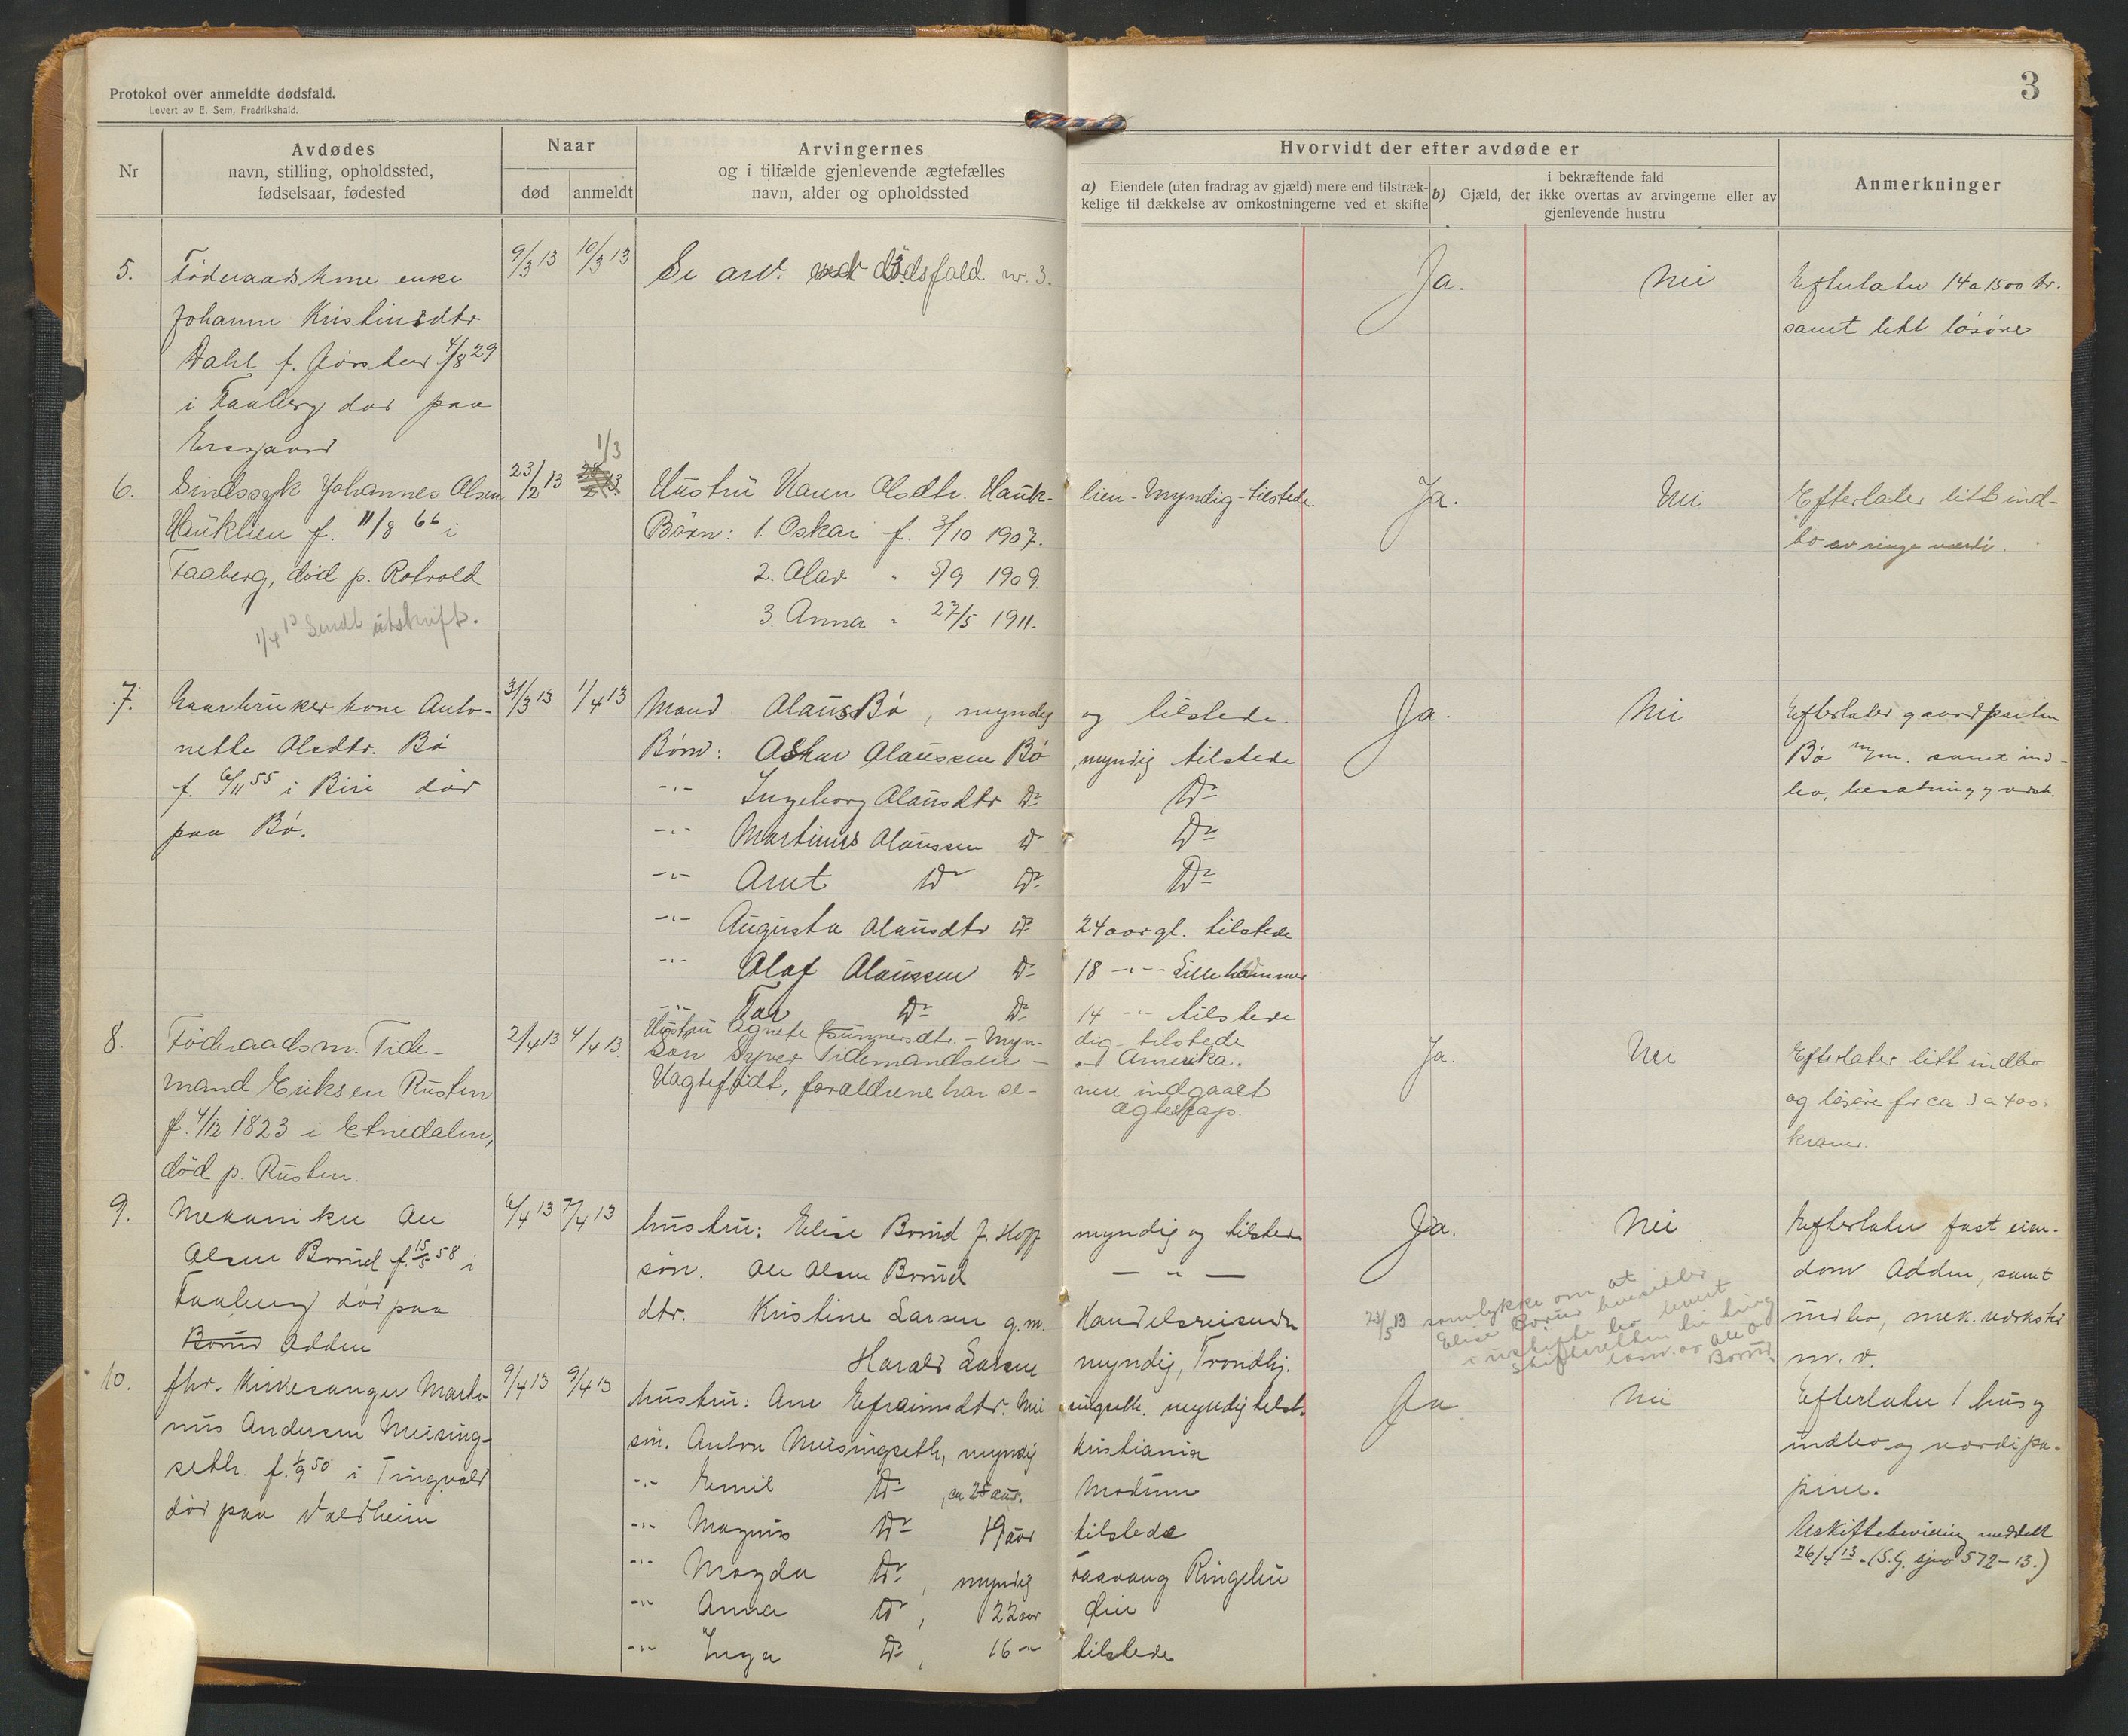 Protokol over anmeldte dødsfald.
Levert av E. Sem, Fredrikshald.
3
Nr
Avdødes
navn, stilling, opholdssted,
fødselsaar, fødested
Naar
død
anmeldt
Arvingernes
og i tilfælde gjenlevende ægtefælles
navn, alder og opholdssted
Hvorvidt der efter avdøde er
a) Eiendele (uten fradrag av gjæld) mere end tilstræk-
kelige til dækkelse av omkostningerne ved et skifte
i bekræftende fald
b) Gjæld, der ikke overtas av arvingerne eller av
gjenlevende hustru
Anmerkninger
5. Føderaadskone enke 9/3 13 10/3 13 Se arv. dødsfald nr. 3. Ja. Nei Efterlater 14 a 1500 kr.
Johanne Kristinsdtr samt litt løsøre
Dahl f. 4/8 29
i Faaberg død paa
6. Sindssyk Johannes Olsen 23/2 13 1/3 Hustru Karen Olsdtr. Hauk- lien - Myndig - tilstede. Ja. Nei Efterlater litt ind-
Hauklien f. 11/8 66 i Børn: 1. Oskar f. 3/10 1907. bo av ringe værdi.
Faaberg, død p. Rotvold 2. Olav " 5/9 1909.
1/4 13 Sendt utskrift. 3. Anna " 27/5 1911.
7. Gaardbruker kone Anto- 31/3 13 1/4 13 Mand Olaus Bø, myndig og tilstede. Ja. Nei Efterlater gaardparten
nette Olsdtr. Bø Børn: Oskar Olaussen Bø myndig tilstede Bø samt ind-
f. 6/11 55 i Biri død -"- Ingeborg Olausdtr Do Do bo, besætning
paa Bø. -"- Martinus Olaussen Do Do
-"- Arnt Do Do Do
-"- Augusta Olausdtr Do 24 aar gl. tilstede
-"- Olaf Olaussen Do 18 -"- Lillehammer
-"- Do Do 14 -"- tilstede
8. Føderaadsm. Tide- 2/4 13 4/4 13. Hustru Agnete Gunnersdtr. - Myn- dig - tilstede Ja. Nei Efterlater litt indbo
mand Eriksen Rusten Søn Syver Tidemandsen - i Amerika. og løsøre for ca 3 a 400.
f. 4/12 1823 i Etnedalen, Uægtefødt, forældrene har se- nere indgaaet kroner.
ægteskap.
død p. Rusten.
9. Mekaniker Ole 6/4 13 7/4 13 hustru: Elise Borud f. Hopp myndig og tilstede Ja. Nei Efterlater fast eien-
Olsen Borud f. 15/5 58 i søn. Ole Olsen Borud — " — dom Odden, samt
Faaberg død paa dtr. Kristine Larsen g.m. Handelsreisende indbo, mek. verksted
Borud Odden Harald Larsen myndig, Trondhj. m. v.
23/5 13 samtykke om at
Elise Borud hensidder
i uskiftet bo levert
skifteretten
Ole O
Borud
10. fhv. Kirkesanger Marti- 9/4 13 9/4 13 hustru: Ane Efraimsdtr. Mei singseth. myndig tilst. Ja. Nei Efterlater 1 hus og
nus Andersen Meising- søn. Anton Meisingseth, myndig Kristiania indbo og værdipa-
seth. f. 1/9 50 i Tingvold -"- Emil Do, ca 25 aar. Modum pirer.
død paa Valdheim -"- Magnus Do 19 aar tilstede
-"- Magda Do, myndig Faavang Ringebu
-"- Anna Do, 22 aar Øier
-"- Inga Do, 16 -"- tilstede
Uskiftebevilling meddelt
26/4 13. (S.G. sj.no 572-13.)